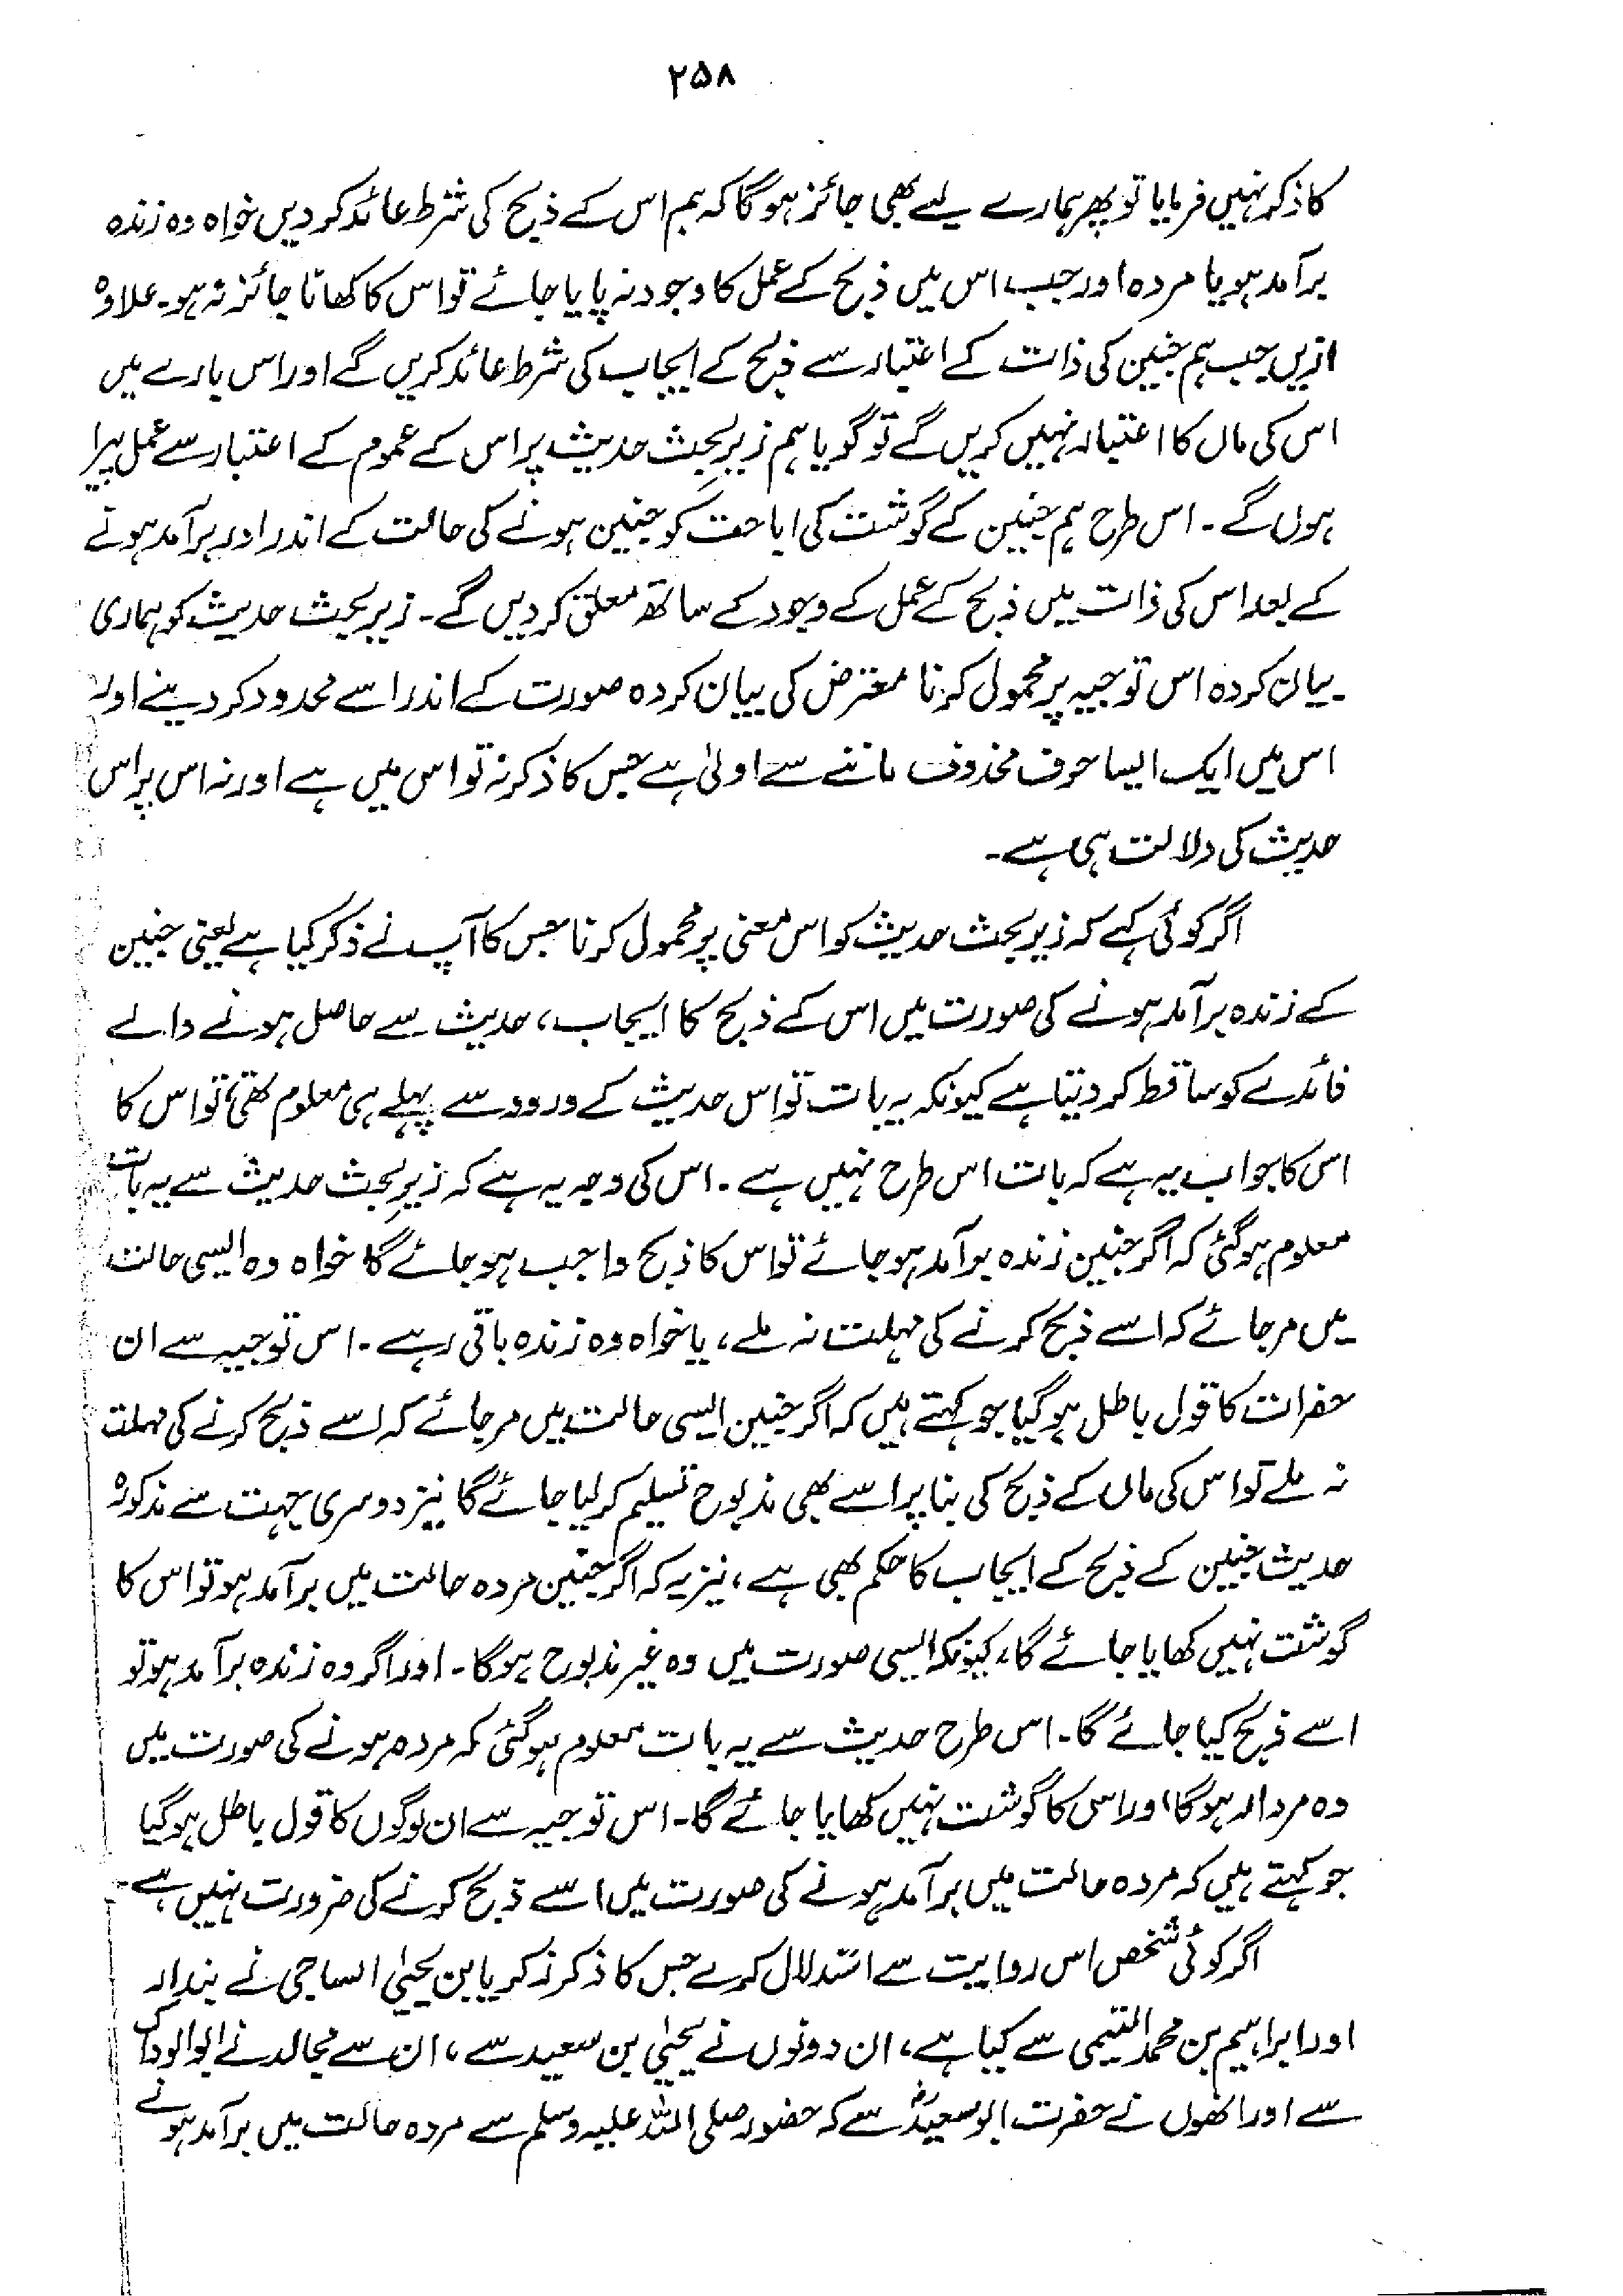 ۲۵۸
کا ذکر نہیں فرمایا تو پھر ہمارے لیے بھی جائز ہوگا کہ ہم اس کے ذبح کی شرط عائد کردیں خواہ وہ زندہ
برآمد ہو یا مردہ اور جب اس میں ذبح کے عمل کا وجود نہ پایا جائے تو اس کا کھانا جائز نہ ہو۔ علاوہ
ازیں جب ہم جنین کی ذات کے اعتبار سے ذبح کے ایجاب کی شرط عائد کریں گے اور اس بارے میں
اس کی ماں کا اعتبار نہیں کریں گے تو گویا ہم زیرِ بحث حدیث پر اس کے عموم کے اعتبار سے عمل پیرا
ہوں گے۔ اس طرح ہم جنین کے گوشت کی اباحت کو جنین ہونے کی حالت کے اندر اور برآمد ہونے
کے بعد اس کی ذات میں ذبح کے عمل کے وجود کے ساتھ معلق کردیں گے۔ زیر بحث حدیث کو ہماری
بیان کردہ اس توجیہ پر محمول کرنا معترض کی بیان کردہ صورت کے اندر اسے محدود کردینے اور
اس میں ایک ایسا حرف محذوف ماننے سے اولیٰ ہے جس کا ذکر نہ تو اس میں ہے اور نہ اس پر اس
حدیث کی دلالت ہی ہے۔
اگر کوئی کہے کہ زیر بحث حدیث کو اس معنی پر محمول کرنا جس کا آپ نے ذکر کیا ہے یعنی جنین
کے زندہ برآمد ہونے کی صورت میں اس کے ذبح کا ایجاب، حدیث سے حاصل ہونے والے
فائدے کو ساقط کردیتا ہے کیونکہ یہ بات تو اس حدیث کے ورود سے پہلے ہی معلوم تھی تو اس کا
اس کا جواب یہ ہے کہ بات اس طرح نہیں ہے۔ اس کی وجہ یہ ہے کہ زیرِ بحث حدیث سے یہ بات
معلوم ہوگئی کہ اگر جنین زندہ برآمد ہو جائے تو اس کا ذبح واجب ہو جائے گا خواہ وہ ایسی حالت
میں مرجائے کہ اسے ذبح کرنے کی مہلت نہ ملے، یا خواہ وہ زندہ باقی رہے۔ اس توجیہ سے ان
حضرات کا قول باطل ہوگیا جو کہتے ہیں کہ اگر جنین ایسی حالت میں مرجائے کہ اسے ذبح کرنے کی مہلت
نہ ملے تو اس کی ماں کے ذبح کی بنا پر اسے بھی مذبوح تسلیم کرلیا جائے گا نیز دوسری جہت سے مذکورہ
حدیث جنین کے ذبح کے ایجاب کا حکم بھی ہے، نیز یہ کہ اگر جنین مردہ حالت میں برآمد ہو تو اس کا
گوشت نہیں کھایا جائے گا، کیونکہ ایسی صورت میں وہ غیر مذبوح ہوگا۔ اور اگر وہ زندہ برآمد ہو تو
اسے ذبح کیا جائے گا۔ اس طرح حدیث سے یہ بات معلوم ہوگئی کہ مردہ ہونے کی صورت میں
وہ مردار ہوگا اور اس کا گوشت نہیں کھایا جائے گا۔ اس توجیہ سے ان لوگوں کا قول باطل ہوگیا
جو کہتے ہیں کہ مردہ حالت میں برآمد ہونے کی صورت میں اسے ذبح کرنے کی ضرورت نہیں ہے۔
اگر کوئی شخص اس روایت سے استدلال کرے جس کا ذکر زکریا بن یحییٰ الساجی نے بندار
اور ابراہیم بن محمد التیمی سے کیا ہے، ان دونوں نے یحییٰ بن سعید سے، ان سے مجالد نے ابوالوداک
سے اور انھوں نے حضرت ابوسعیدؓ سے کہ حضور صلی اللہ علیہ وسلم سے مردہ حالت میں برآمد ہونے